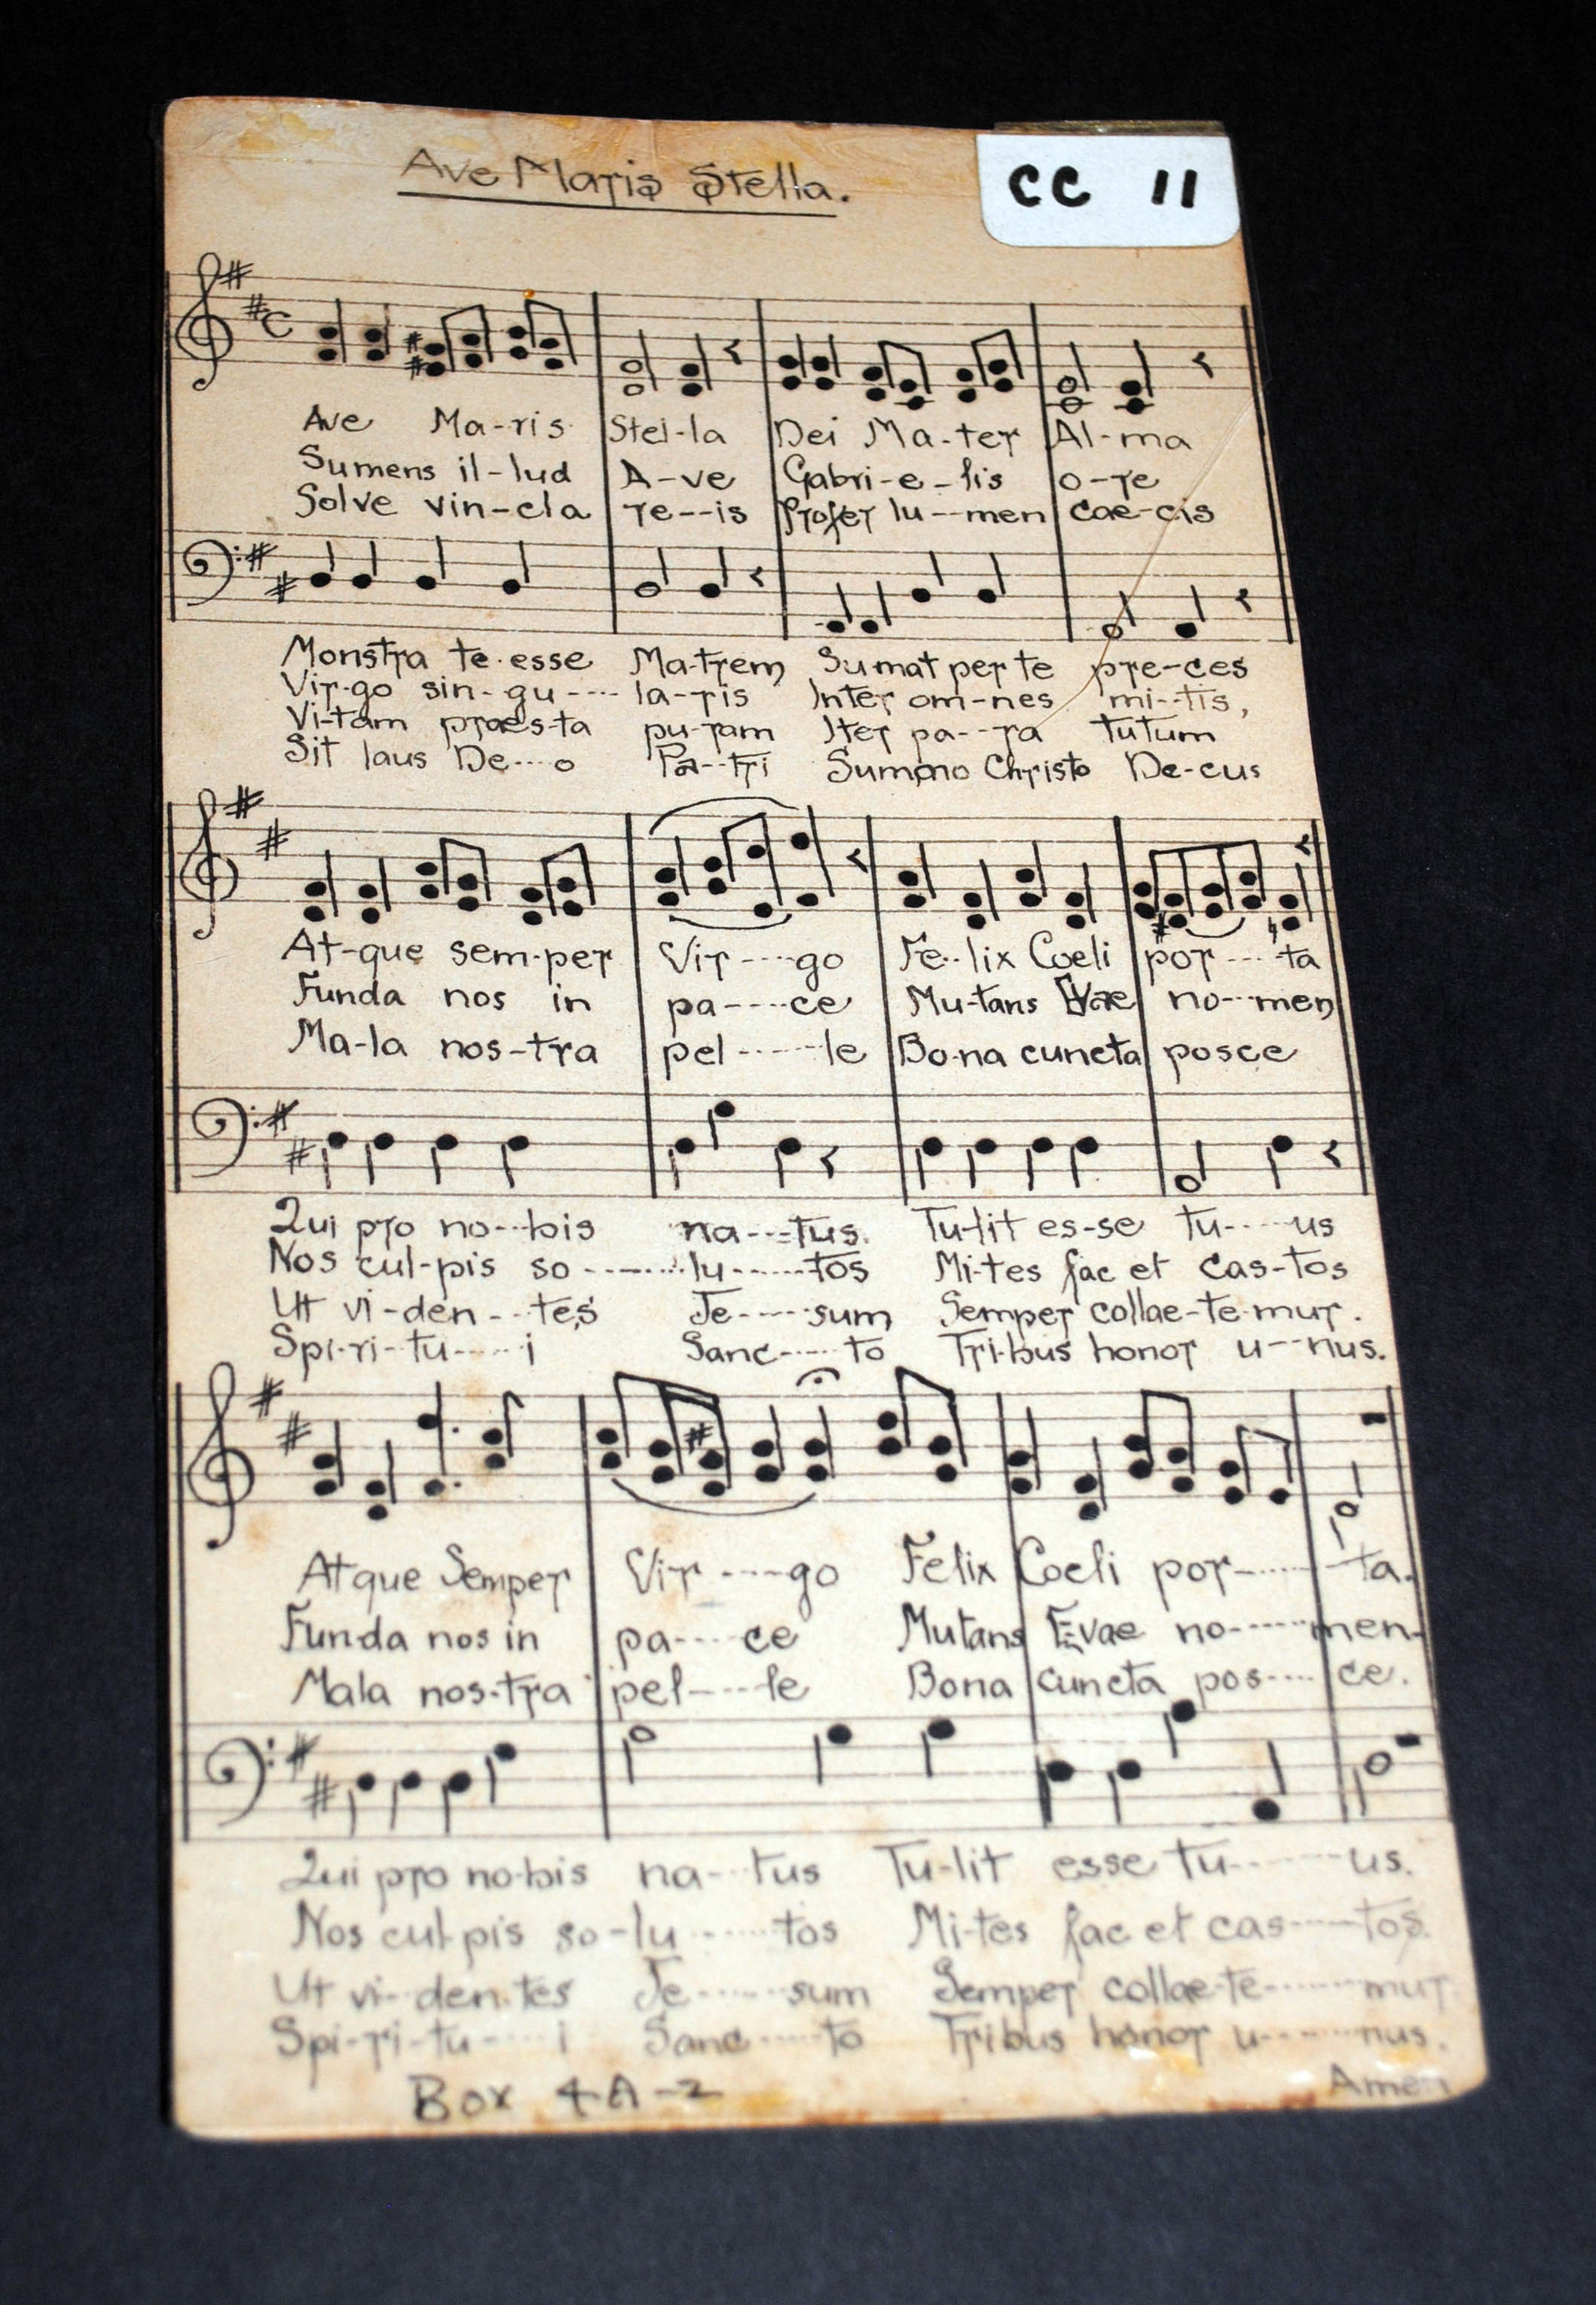 Ave Maris Stella.
CC 11
Ave Ma-ris Stel-la Dei Ma-ter Al-ma
Sumens il-lud A-ve Gabri-e-lis o-re
Solve vin-cla re--is Profer lu--men cae-cis
Monstra te esse Ma-trem Sumat per te pre-ces
Vir-go sin-gu---- la-ris Inter om-nes mi--tis,
Vi-tam praes-ta pu-ram Iter pa--ra tutum
Sit laus De---o Pa--tri Summo Christo De-cus
At-que sem-per Vir----go Fe--lix Coeli por----ta
Funda nos in pa----ce Mu-tans Evae no---men
Ma-la nos-tra pel------le Bo-na cuncta posce
Qui pro no--bis na---tus. Tu-lit es-se tu-----us
Nos cul-pis so------lu-----tos Mi-tes fac et cas-tos
Ut vi-den---tes Je-----sum Semper collae-te-mur.
Spi-ri-tu-----i Sanc-----to Tri-bus honor u--nus.
Atque Semper Vir----go Felix Coeli por------ta.
Fun-da nos in pa----ce Mutans Evae no------men.
Mala nos-tra pel----le Bona cuncta pos----ce.
Qui pro no-bis na--tus Tu-lit esse tu-------us.
Nos cul-pis so-lu------tos Mi-tes fac et cas-----tos.
Ut vi-den-tes Je------sum Semper collae-te-------mur
Spi-ri-tu----i Sanc-----to Tribus honor u-------nus.
Amen
Box 4A-2